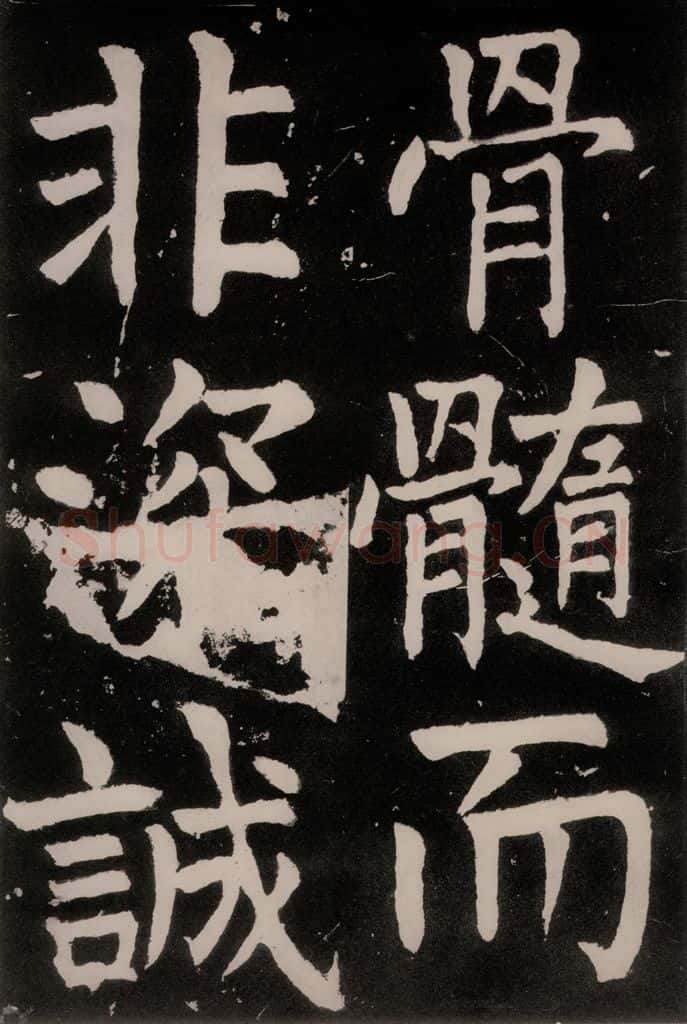 骨髓而
非深誠
Shufawang.CN